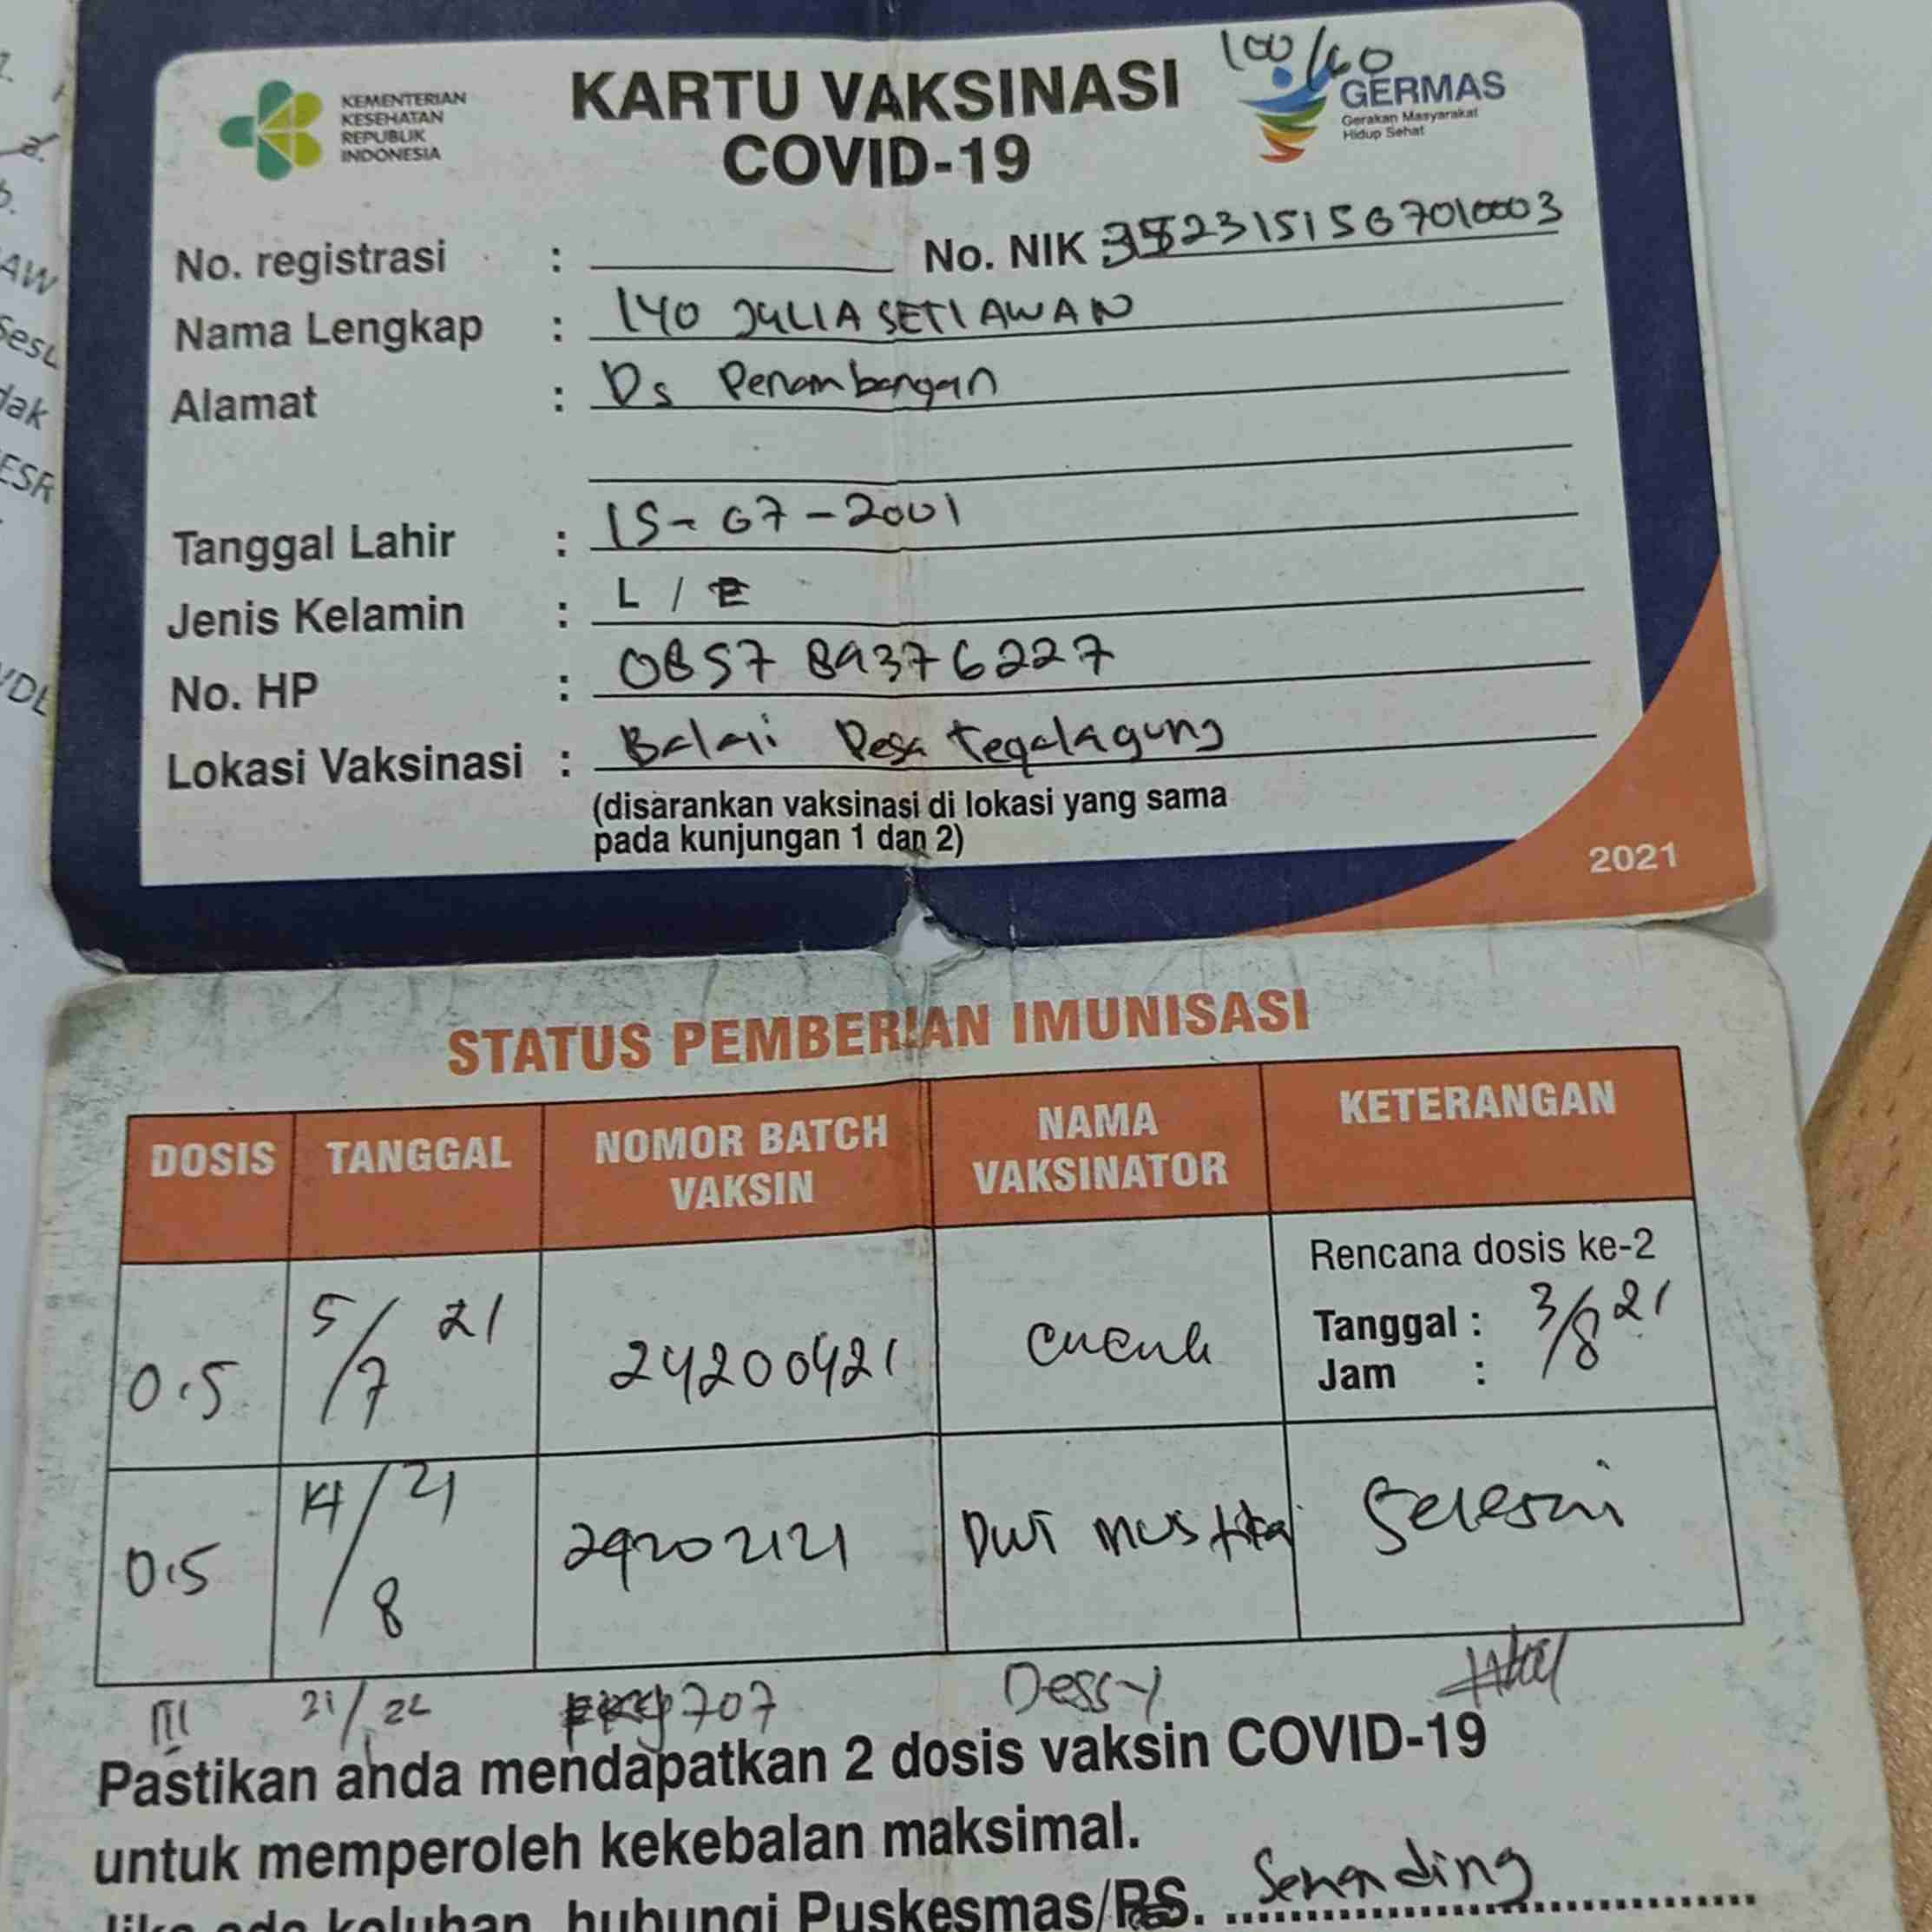 100/60
KEMENTERIAN
KESEHATAN
REPUBLIK
INDONESIA
KARTU VAKSINASI
COVID-19
GERMAS
Gerakan Masyarakat
Hidup Sehat
No. registrasi : No. NIK 3523151507010003
Nama Lengkap : IYO JULIA SETIAWAN
Alamat : Ds Penambangan
Tanggal Lahir : 15-07-2001
Jenis Kelamin : L / P
No. HP : 0857 89376227
Lokasi Vaksinasi : Balai Desa Tegalagung
(disarankan vaksinasi di lokasi yang sama
pada kunjungan 1 dan 2)
2021
STATUS PEMBERIAN IMUNISASI
DOSIS TANGGAL NOMOR BATCH VAKSIN NAMA VAKSINATOR KETERANGAN
0.5 5/7 21 24200421 cucuk Rencana dosis ke-2
Tanggal : 3/8 21
Jam :
0.5 14/8 21 29202121 Dwi Mustika Selesai
III 21/ 22 707 Dessy
Pastikan anda mendapatkan 2 dosis vaksin COVID-19
untuk memperoleh kekebalan maksimal.
Jika ada keluhan, hubungi Puskesmas/RS. Semanding
AW
dak
ESR
VDL